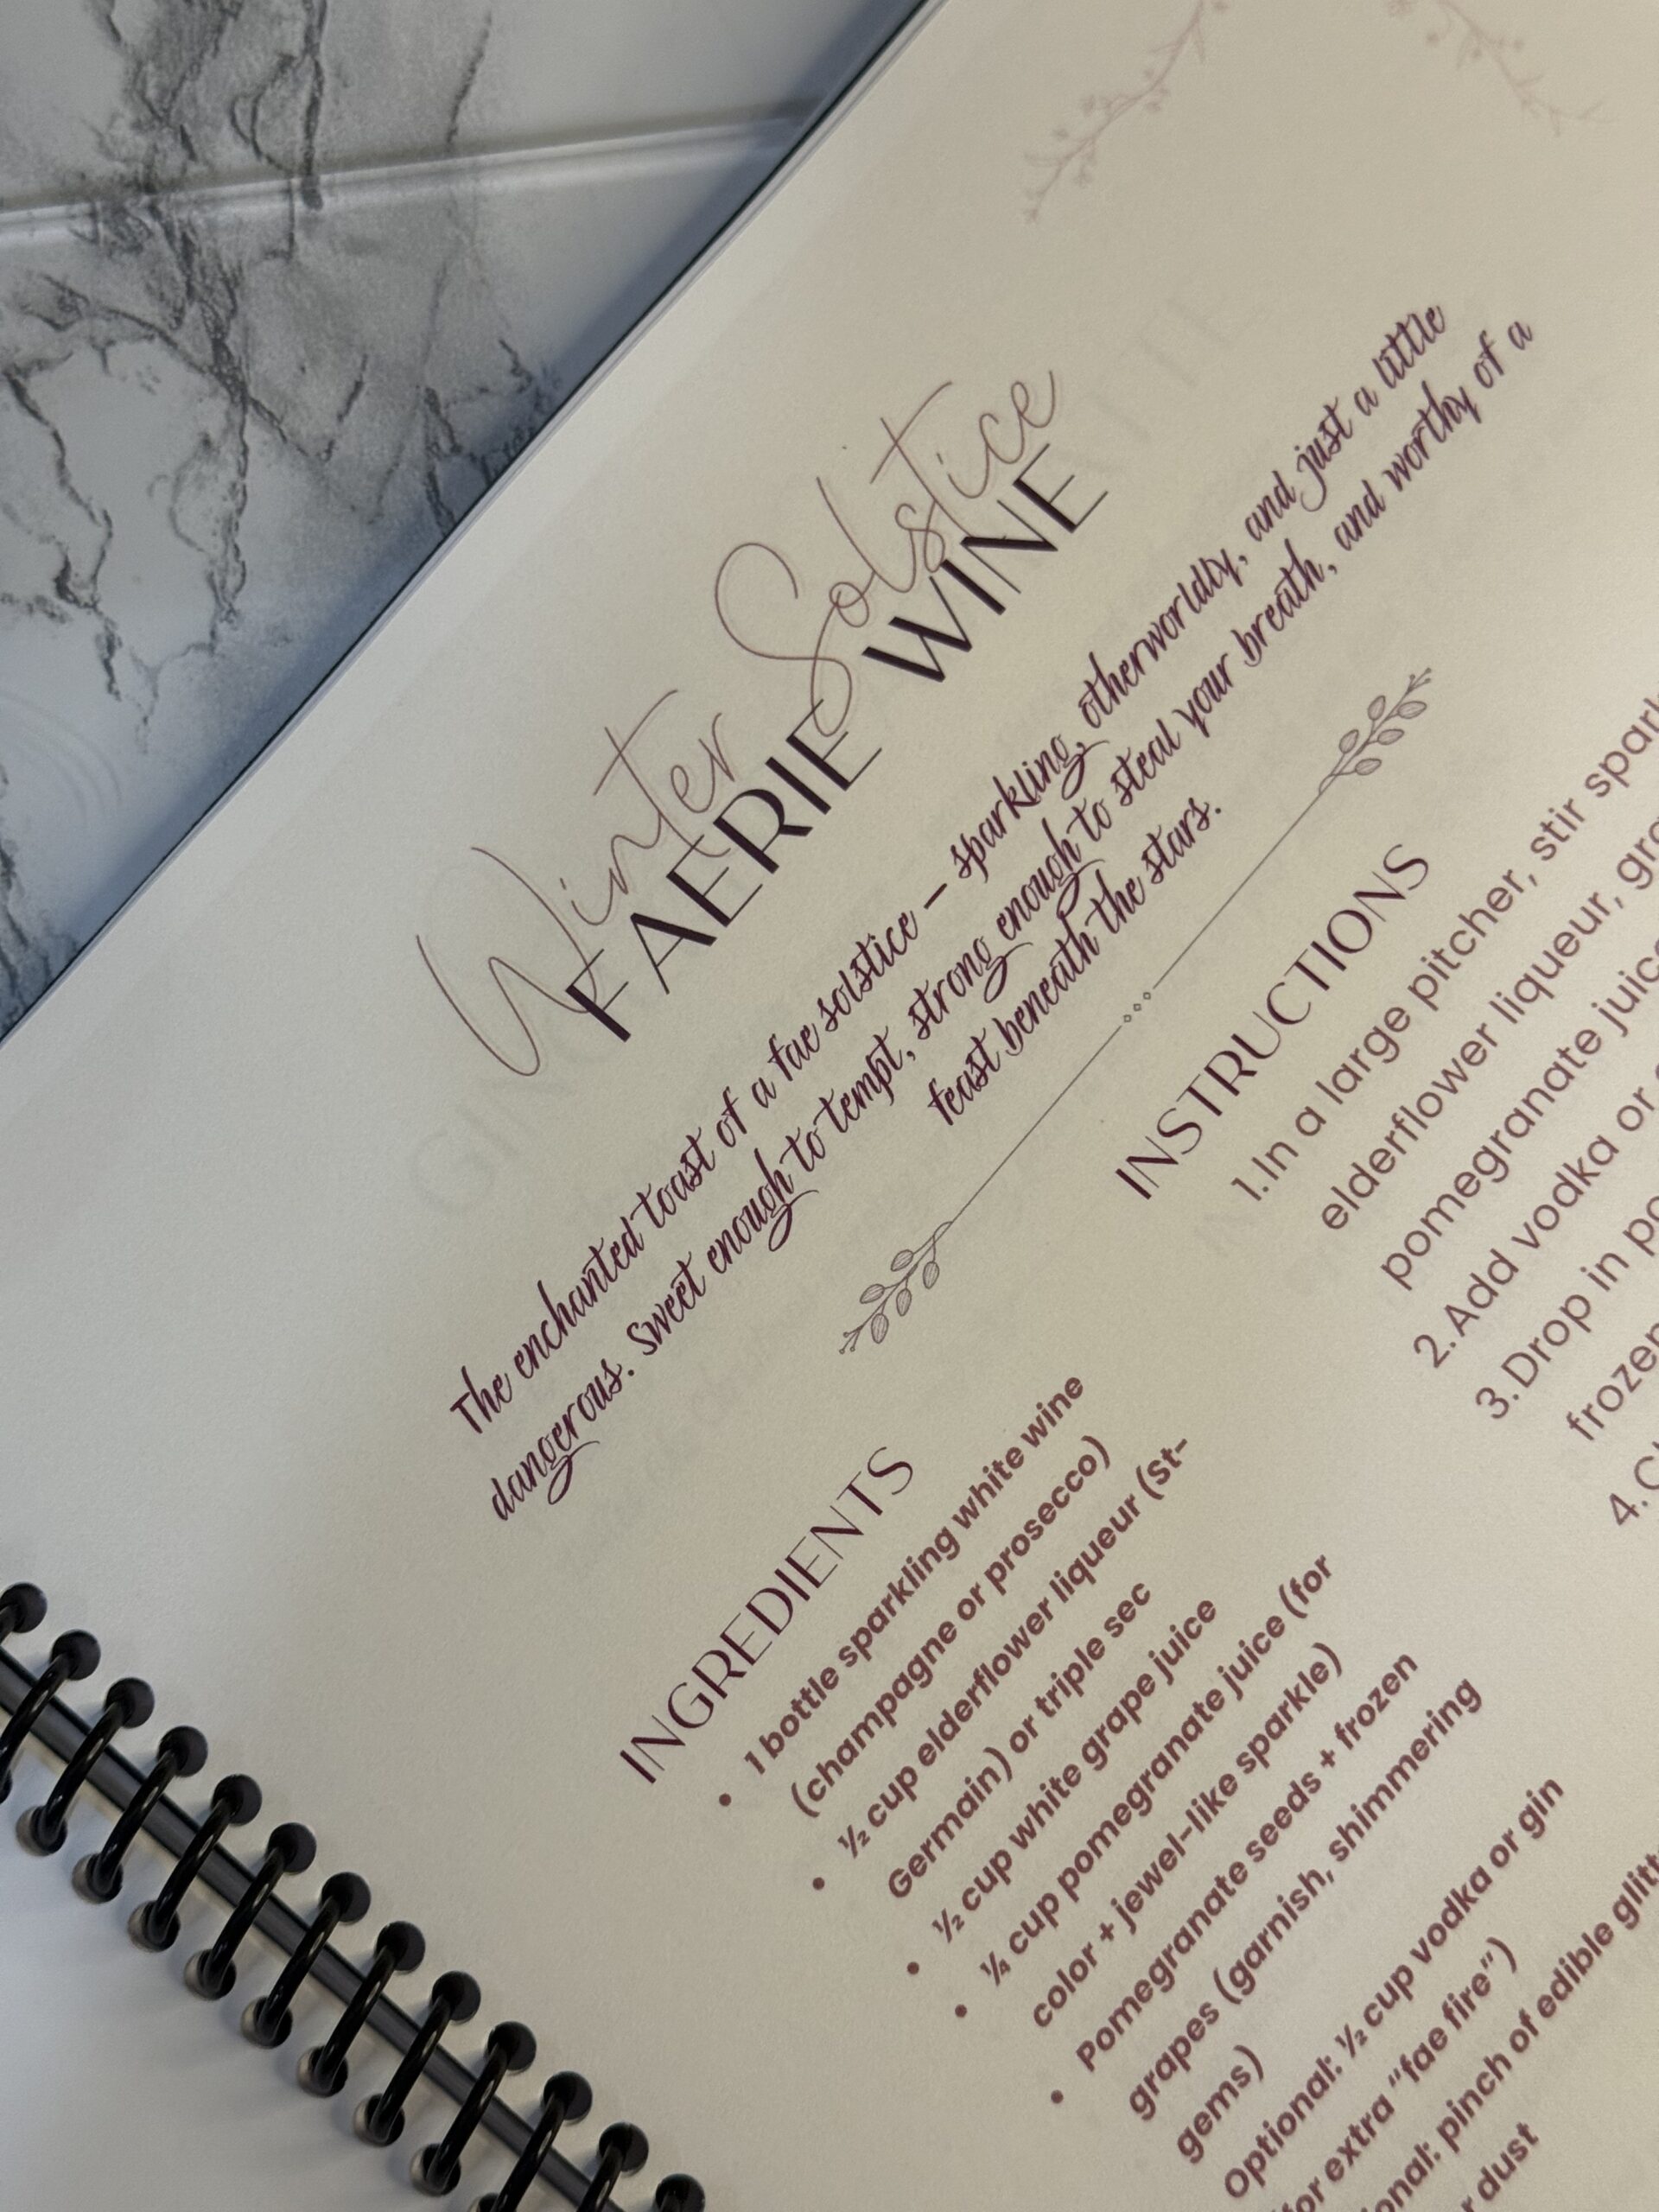 Winter Solstice
FAERIE WINE
The enchanted toast of a fae solstice — sparkling, otherworldly, and just a little
dangerous. Sweet enough to tempt, strong enough to steal your breath, and worthy of a
feast beneath the stars.
INGREDIENTS
• 1 bottle sparkling white wine
(champagne or prosecco)
• ½ cup elderflower liqueur (St-
Germain) or triple sec
• ½ cup white grape juice
• ¼ cup pomegranate juice (for
color + jewel-like sparkle)
• Pomegranate seeds + frozen
grapes (garnish, shimmering
gems)
Optional: ½ cup vodka or gin
for extra "fae fire")
pinch of edible
dust
INSTRUCTIONS
1. In a large pitcher, stir
elderflower liqueur,
pomegranate
2. Add vodka or
3. Drop in
frozen
4.